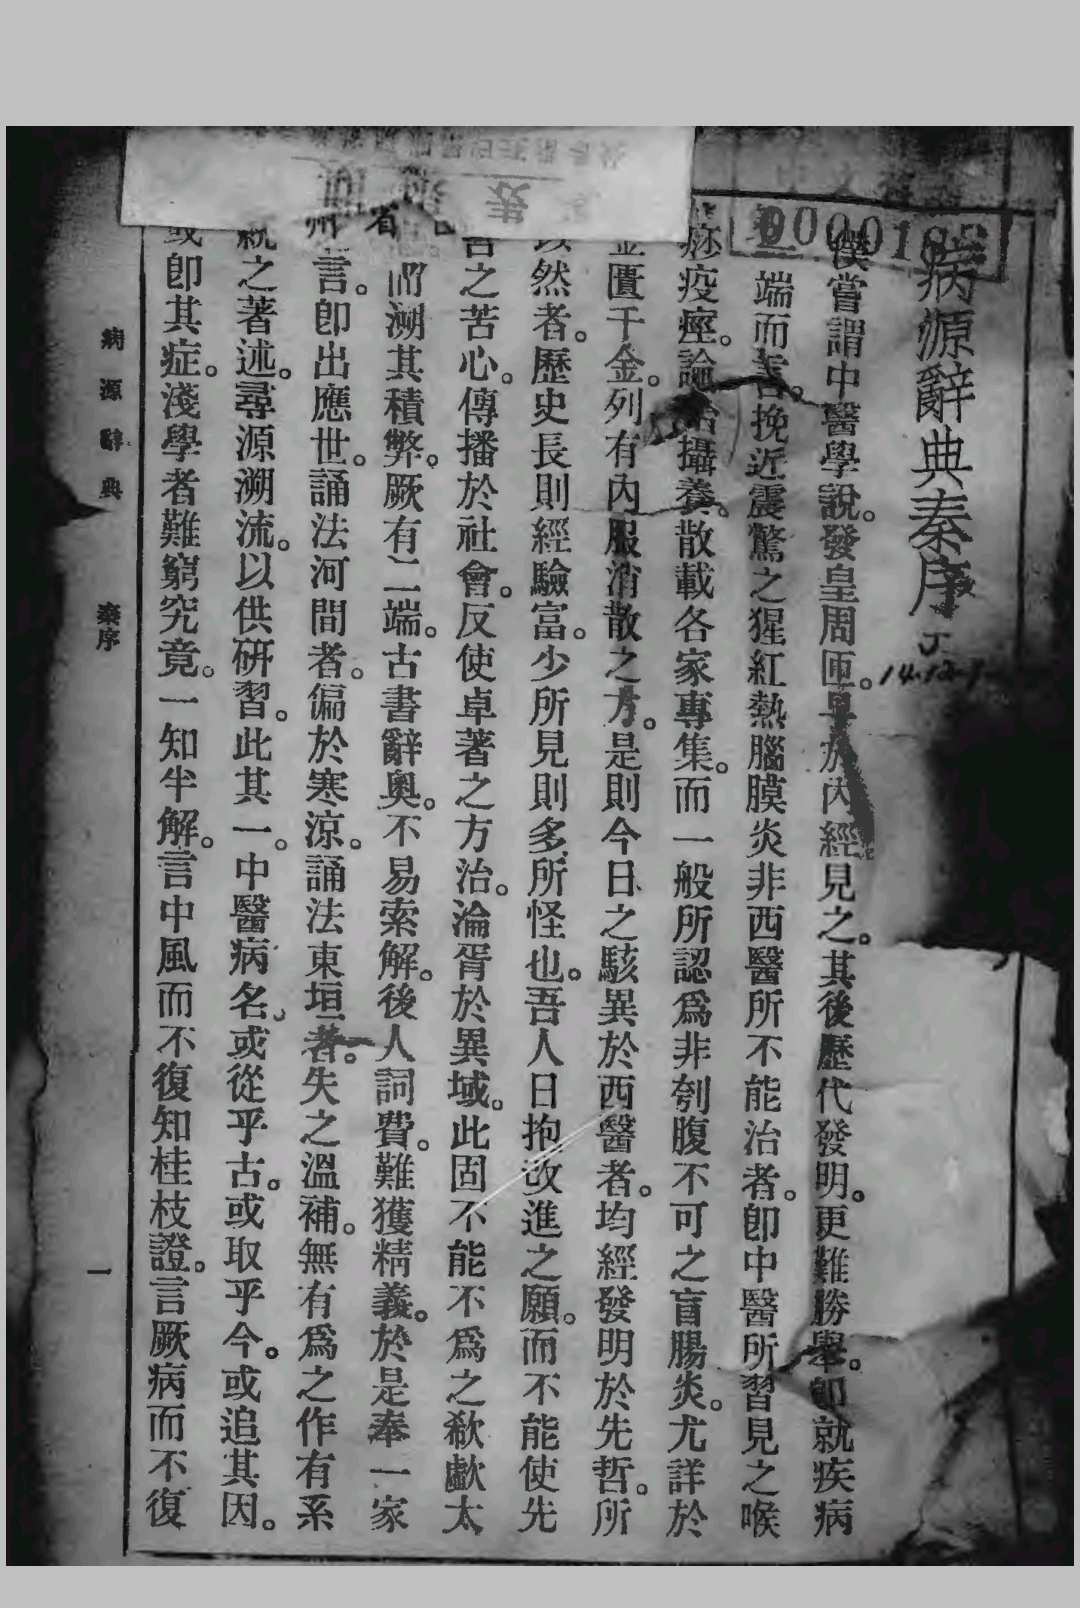 病源辭典秦序
僕嘗謂中醫學說。發皇周匝。早於內經見之。其後歷代發明。更難勝舉。卽就疾病
一端而言。挽近震驚之猩紅熱腦膜炎非西醫所不能治者。卽中醫所習見之喉
痧疫痙。論治攝養。散載各家專集。而一般所認爲非刳腹不可之盲腸炎。尤詳於
金匱千金。列有內服消散之方。是則今日之駭異於西醫者。均經發明於先哲。所
以然者。歷史長則經驗富。少所見則多所怪也。吾人日抱改進之願。而不能使先
哲之苦心。傳播於社會。反使卓著之方治。淪胥於異域。此固不能不爲之欷歔太
溯其積弊。厥有二端。古書辭奧。不易索解。後人詞費。難獲精義。於是奉一家
言。卽出應世。誦法河間者。偏於寒涼。誦法東垣者。失之溫補。無有爲之作有系
統之著述。尋源溯流。以供硏習。此其一。中醫病名。或從乎古。或取乎今。或追其因。
或卽其症。淺學者難窮究竟。一知半解。言中風而不復知桂枝證。言厥病而不復
病源辭典
秦序
一
0000195
14-12-1
省
州